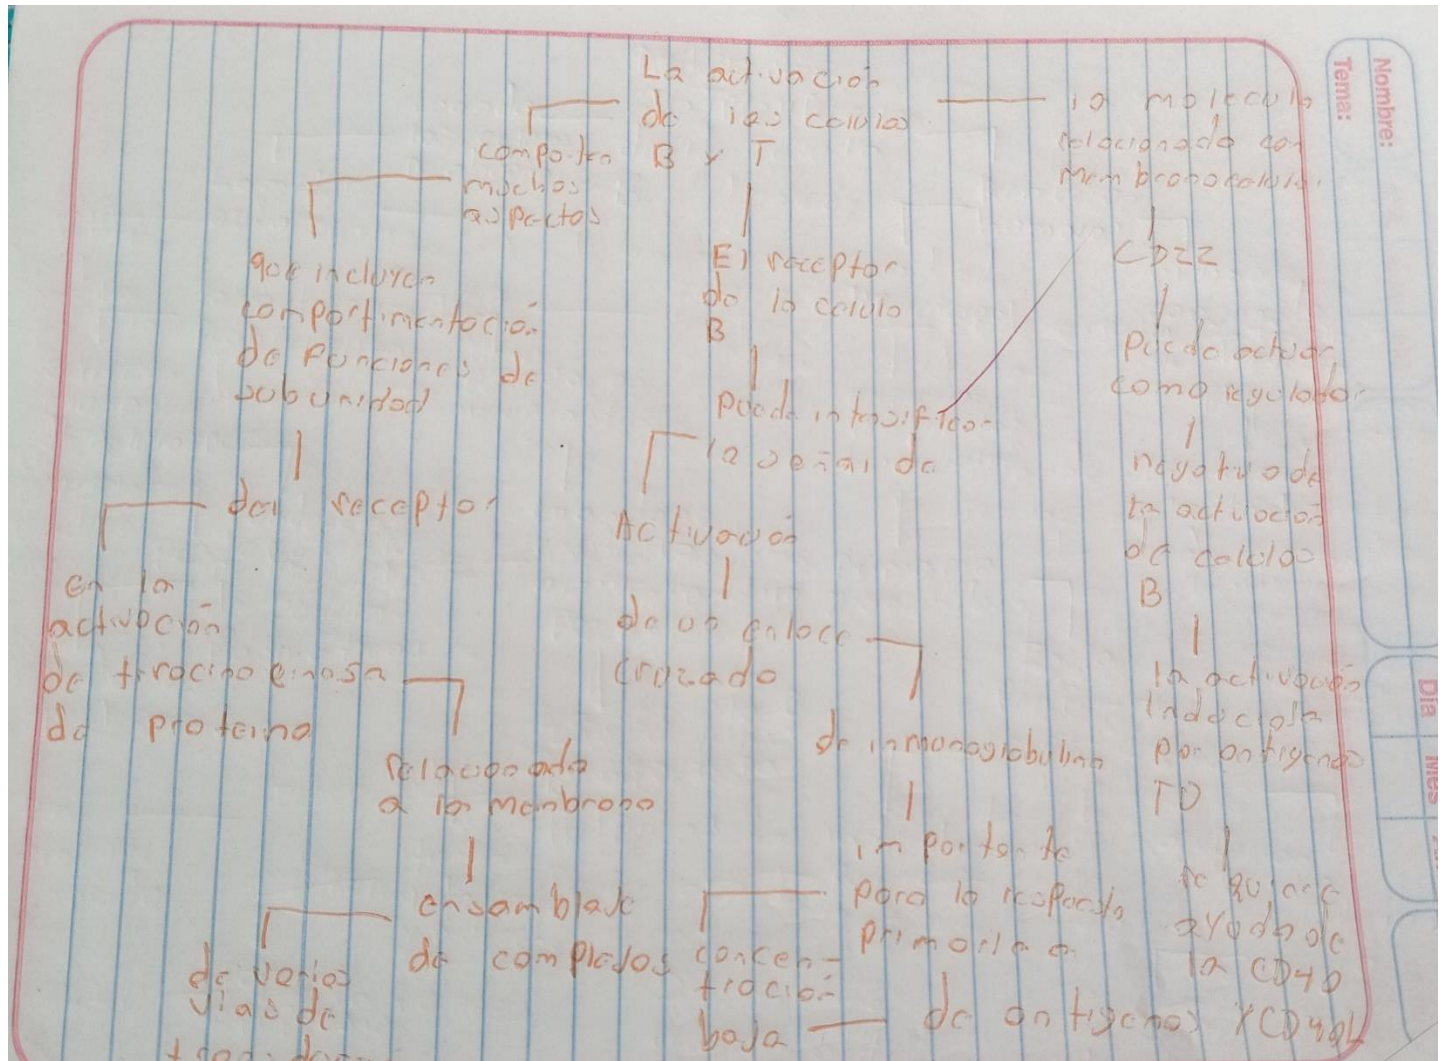 La activación
de las celulas
B y T
comparten
muchos
aspectos
que incluyen
compartimentación
de funciones de
subunidad
del receptor
en la
activación
de tirocino einosa
de proteina
relacionada
a la menbrana
ensamblaje
de complejos
de varias
vias de
El receptor
de la celula
B
Puede intensificar
la señal de
Activación
de un enlace
cruzado
de inmunoglobulina
importante
para la respuesta
primaria a
concen-
tración
baja
de antigenos
la molecula
relacionada con
membrana celular
CD22
Puede actuar
como regulador
negativo de
la activación
de celulas
B
la activación
Inducida
por antigenos
TD
requiere
ayuda de
la CD40
y CD40L
Nombre:
Tema:
Dia
Mes